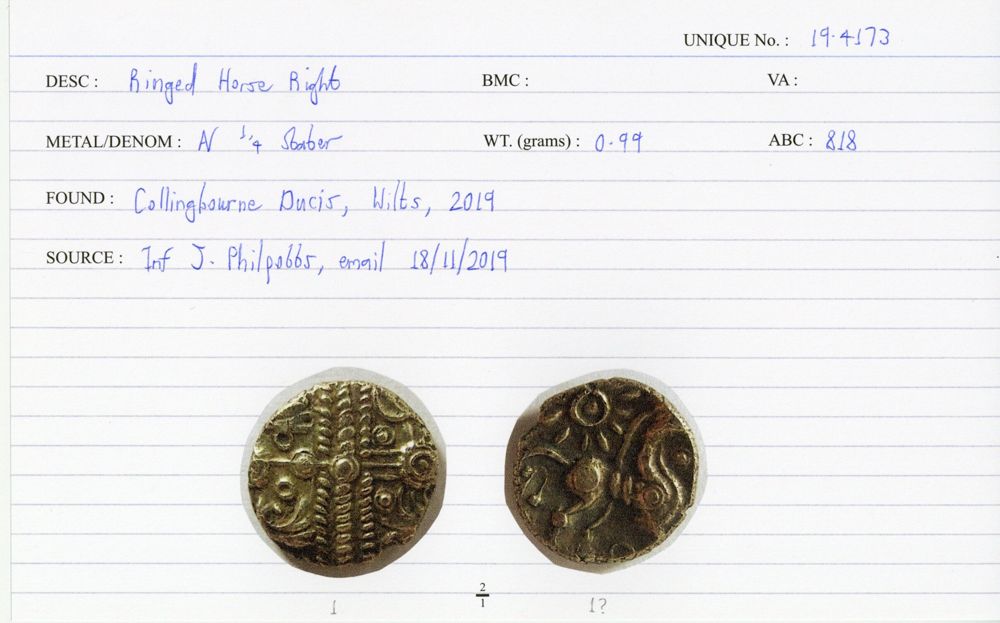 UNIQUE No. : 19.4173
DESC : Ringed Horse Right BMC : VA :
METAL/DENOM : AV 1/4 Stater WT. (grams) : 0.99 ABC : 818
FOUND : Collingbourne Ducis, Wilts, 2019
SOURCE : Inf J. Philpotts, email 18/11/2019
2/1
1 1?